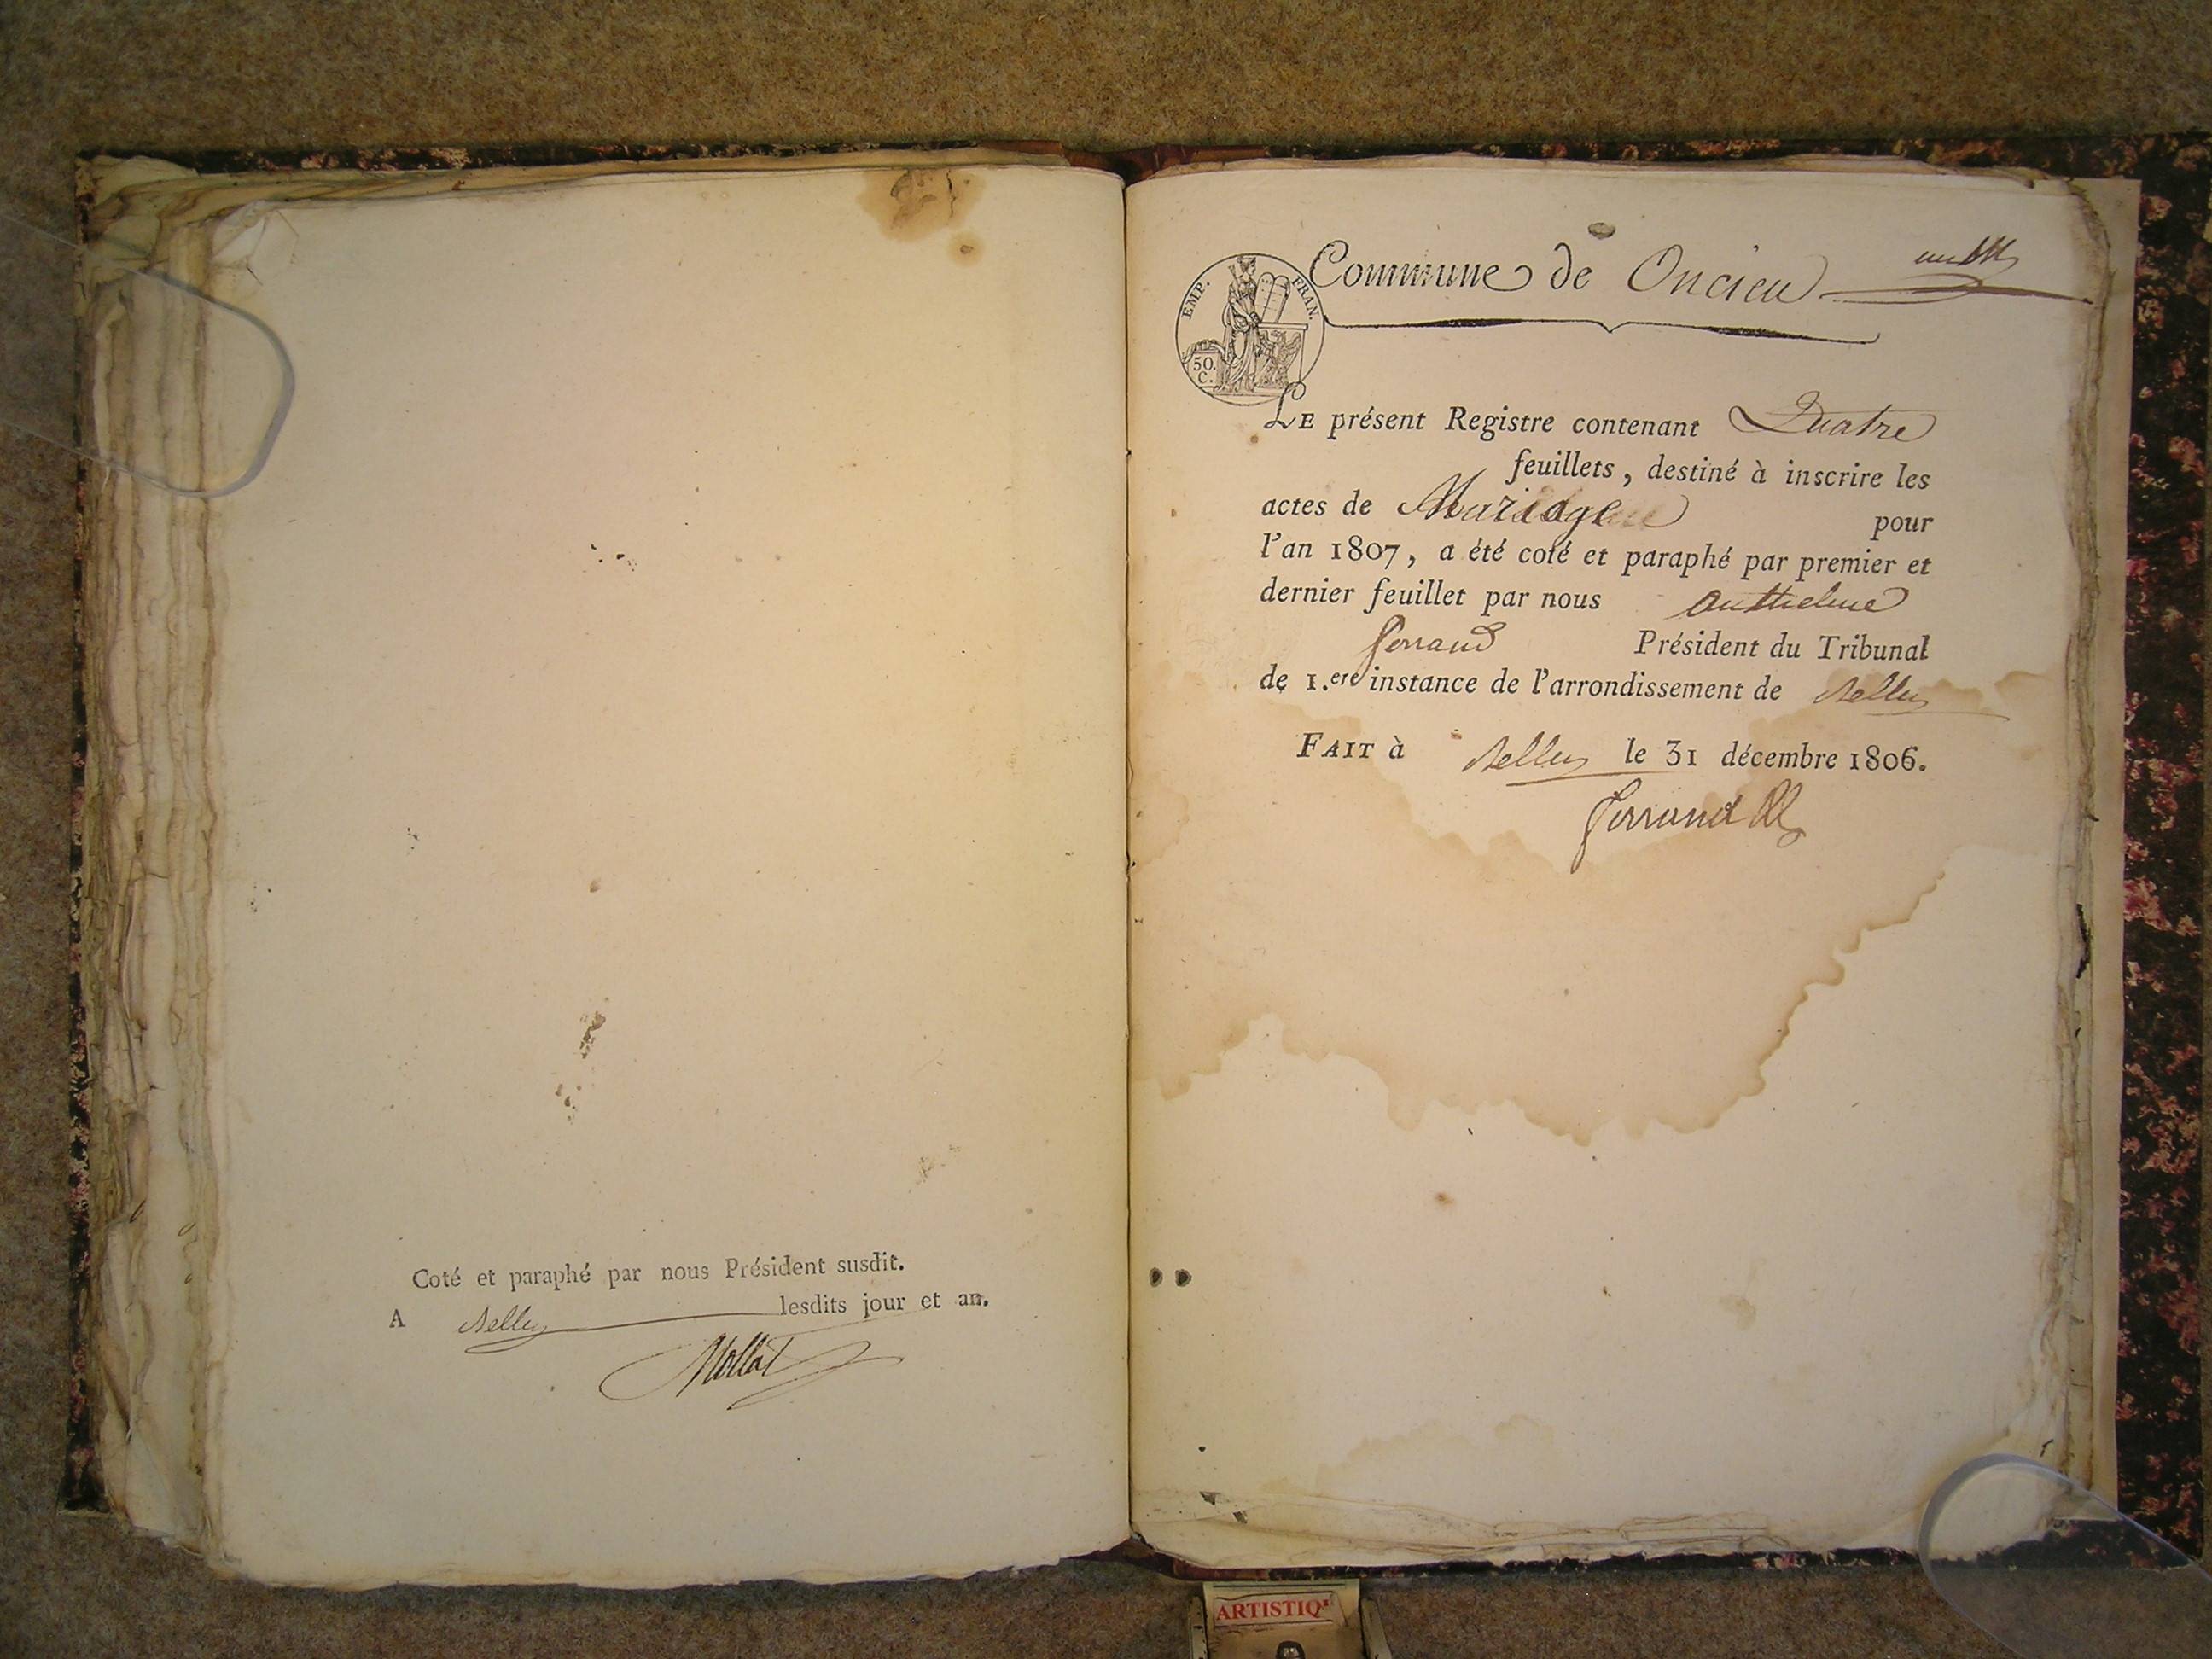 Coté et paraphé par nous Président susdit.
A Belley lesdits jour et an.
Mollat
EMP. FRAN.
50.
C.
Commune de Oncieu
Le présent Registre contenant Quatre
feuillets, destiné à inscrire les
actes de Mariage pour
l'an 1807, a été coté et paraphé par premier et
dernier feuillet par nous Anthelme
Ferrand Président du Tribunal
de 1.ere instance de l'arrondissement de Belley
FAIT à Belley le 31 décembre 1806.
Ferrand
ARTISTIQ